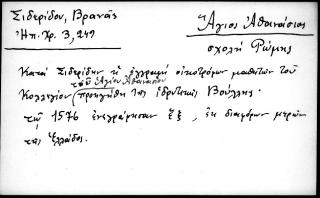 Σιδερίδου, Βρανᾶς
Ἠπ. Χρ. 3, 249
Ἅγιος Ἀθανάσιος
σχολή Ρώμης
Κατά Σιδερίδην ἡ ἐγγραφή οἰκοτρόφων μαθητῶν τοῦ
τοῦ Ἁγίου Ἀθανασίου
Κολλεγίου (προηγήθη τῆς ἱδρυτικῆς Βούλλης.
τῷ 1576 ἐνεγράφησαν ἕξ, ἐκ διαφόρων μερῶν
τῆς Ἑλλάδος.